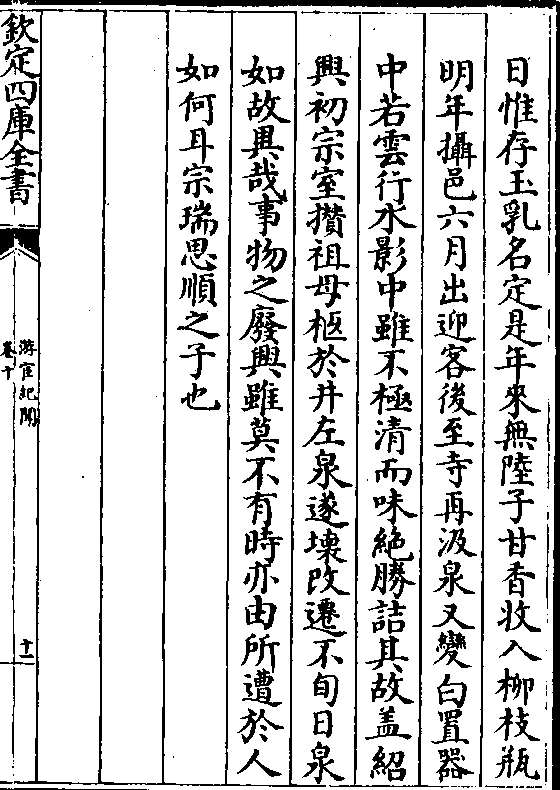 日惟存玉乳名定是年來無陸子甘香收入柳枝瓶
明年攝邑六月出迎客後至寺再汲泉又變白置器
中若雲行水影中雖不極清而味絶勝詰其故盖紹
興初宗室攢祖母柩於井左泉遂壊改遷不旬日泉
如故異哉事物之廢興雖莫不有時亦由所遭於人
如何耳宗瑞思順之子也
欽定四庫全書
游宦紀聞
卷十
十一